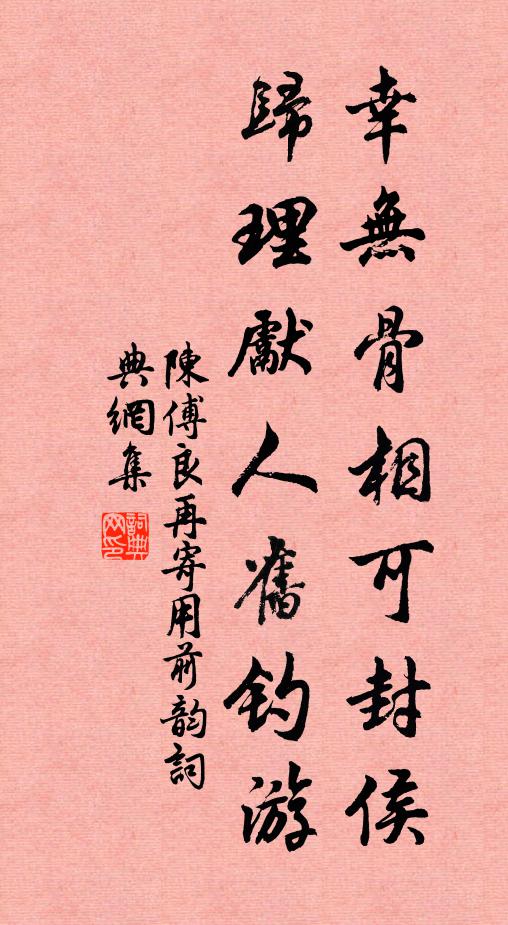 幸無骨相可封侯
歸理獻人舊釣游
陳傅良再寄用前韵詞
典網集
詞典
网印